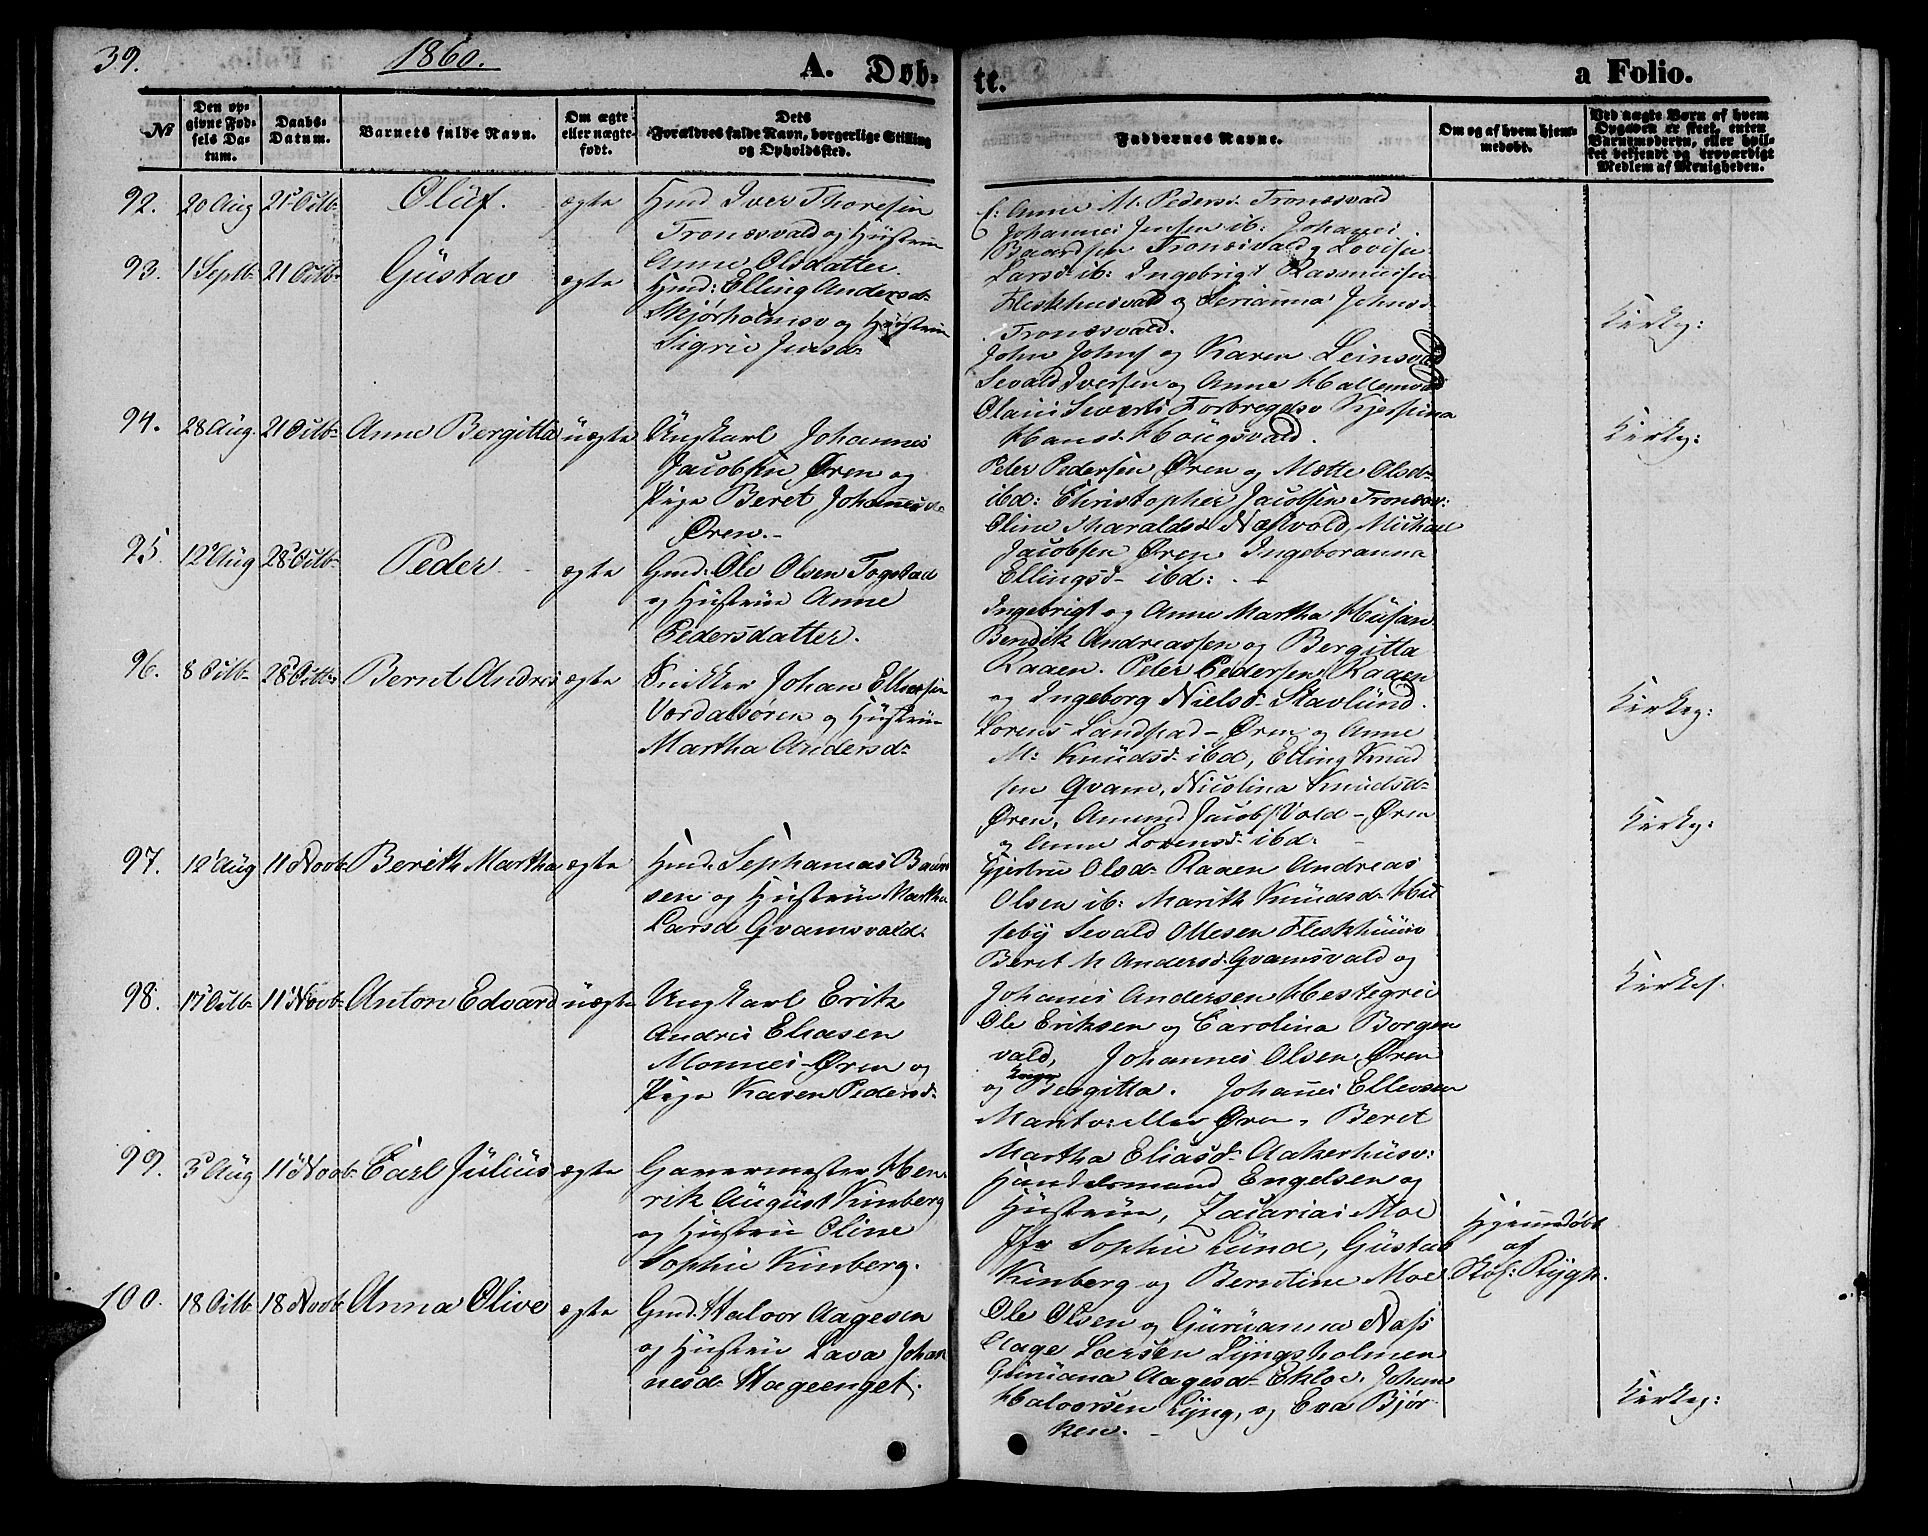 39.
1860.
A. Døb-
te.
a Folio.
No
Den op-
givne Fød-
sels Da-
tum.
Daabs-
Datum.
Barnets fulde Navn.
Om ægte
eller uægte
født.
Dets
Forældres fulde Navn, borgerlige Stilling
og Opholdssted.
Faddernes Navne.
Om og af hvem hjem-
medøbt.
Ved uægte Børn af hvem
Opgaven er skeet, enten
Barnemoderen, eller hvil-
ket bekjendt og troværdigt
Medlem af Menigheden.
92.
20 Aug
21 Octb
Oluf.
ægte
Hmd Iver Thoresen
Tronesvald og Hustrue
Anne Olsdatter.
Anne M. Pedersd. Tronesvald
Johannes Jensen ib: Johanes
Baardsen Tronesvald, Lovise
Larsd ib: Ingebrigt Rasmussen
Fleskhusvald og Seriauna Johnsd.
Tronesvald.
93.
1 Septb
21 Octb
Gustav
ægte
Hmd: Elling Andersd
Skjørholmsv og Hustrue
Sigrie Jensd
John Johns og Karen Leinsvald
Sevald Iversen og Anne Hallemsvald
Olaus Severts Forbregdsv Kjerstina
Hansd. Hougsvald.
Kirkeg:
94.
28 Aug.
21 Octb
Anne Bergitta
uægte
Ungkarl Johannes
Jacobsen Øren og
Pige Beret Johanesd
Øren.
Peter Pedersen Øren og Mette Olsd
ibd: Christopher Jacobsen Tronesv:
Eline Tharaldsd Næsvold, Michael
Jacobsen Øren Ingeboranna
Ellingsd ibd:
Kirkeg:
95.
12 Aug
28 Octb
Peder
ægte
Gmd: Ole Olsen Togstad
og Hustrue Anne
Pedersdatter.
Ingebrigt og Anne Martha Husan
Bendik Andreassen og Bergitta
Raaen. Peter Pedersen Raaen
og Ingeborg Nielsd Stavlund.
96.
8 Octb
28 Octb
Bernt Andreas
ægte
Snikker Johan Ellevsen
Værdalsøren og Hustrue
Martha Andersd
Lorens Landstad Øren og Anne
M: Knudsd ibd, Elling Knud
sen Qvam, Nicolina Knudsd
Øren, Amund Jacobs Vold Øren
og Anne Lorensd. ibd:
Kirkeg:
97.
12 Aug
11 Novb
Berith Martha
ægte
Hmd: Sephanias Baard
sen og Hustrue Martha
Larsd Qvamsvald
Gjertru Olsd Raaen Andreas
Olsen ib: Marith Knudsd Hu
seby Sevald Ollesen Fleskhuusv
Beret M Andersd. Qvamsvald og
Kirkeg:
98.
17 Octb
11 Novb
Anton Edvard
uægte
Ungkarl Erik
Andreas Eliasen
Monnes Øren og
Pige Karen Pedersd
Johanes Andersen Hestegrei
Ole Eriksen og Carolina Borgen
vald, Johannes Olsen Øren
og Bergitta. Johanes Ellevsen
Øren, Beret
Martha Eliasd. Aakerhusv:
Kirkes.
99.
3 Aug
11 Novb
Carl Julius
ægte
Garvermester Hen
rik August Kinberg
og Hustrue Oline
Sophie Kinberg.
Handelsmand Engelsen og
Hustrue, Zacarias Moe
Jfr Sophie Lund, Gustav
Kinberg og Berntine Moe
Hjemmedøbt
af
100.
18 Octb
18 Novb
Anna Olive
ægte
Gmd. Halvor Aagesen
og Hustrue Lava Johan
nesd Hageenget.
Ole Olsen og Guruanna Næss
Elage Larsen Lyngsholmen
Guruana Aagesd Ekloe. Johan
Halvorsen Lyng, og Eva Bjør
ken.
Kirkeg: